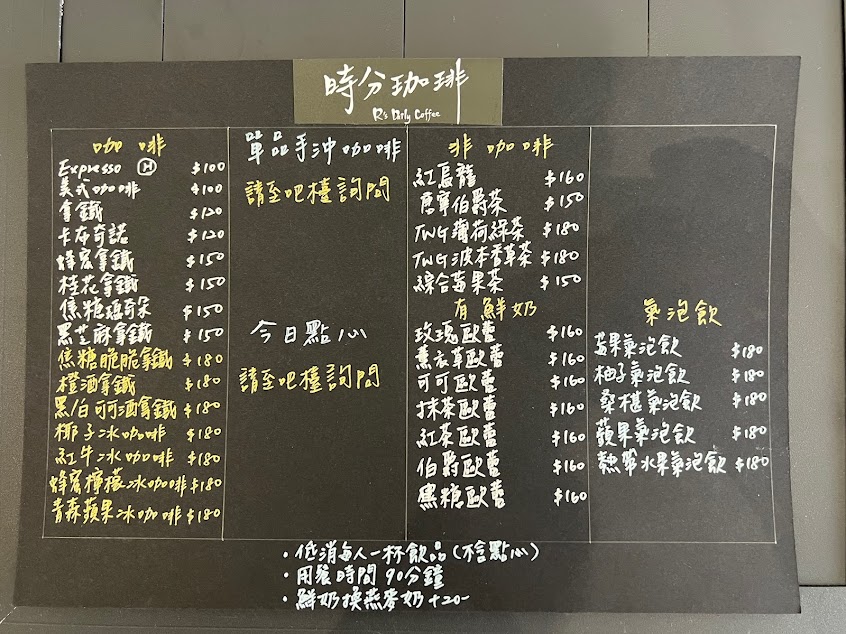 時分珈琲
R's Early Coffee
咖啡
Expresso Ⓗ $100
美式咖啡 $100
拿鐵 $120
卡布奇諾 $120
蜂蜜拿鐵 $150
桂花拿鐵 $150
焦糖瑪奇朵 $150
黑芝麻拿鐵 $150
焦糖脆脆拿鐵 $180
橙酒拿鐵 $180
黑/白可可酒拿鐵 $180
椰子冰咖啡 $180
紅牛冰咖啡 $180
蜂蜜檸檬冰咖啡 $180
青森蘋果冰咖啡 $180
單品手沖咖啡
請至吧檯詢問
今日點心
請至吧檯詢問
非咖啡
紅烏龍 $160
唐寧伯爵茶 $150
TWG 薄荷綠茶 $180
TWG 波本香草茶 $180
綜合莓果茶 $150
有鮮奶
玫瑰歐蕾 $160
薰衣草歐蕾 $160
可可歐蕾 $160
抹茶歐蕾 $160
紅茶歐蕾 $160
伯爵歐蕾 $160
黑糖歐蕾 $160
氣泡飲
莓果氣泡飲 $180
柚子氣泡飲 $180
桑椹氣泡飲 $180
蘋果氣泡飲 $180
熱帶水果氣泡飲 $180
・低消每人一杯飲品(不含點心)
・用餐時間90分鐘
・鮮奶換燕麥奶+20-